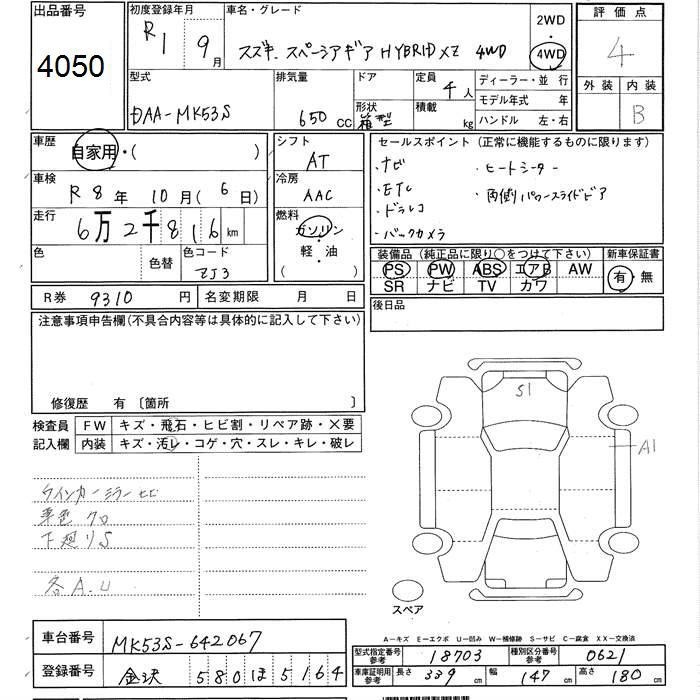 出品番号
4050
初度登録年月
R1 9月
車名・グレード
スズキ スペーシアギア HYBRID XZ 4WD
2WD
・
4WD
評価点
4
外装 内装
B
型式
DAA-MK53S
排気量
650 CC
ドア
形状
箱型
定員
4人
積載
kg
ディーラー・並行
モデル年式 年
ハンドル 左・右
車歴
自家用・( )
車検
R8年10月(6日)
走行
6万2千816km
色
色替
色コード
ZJ3
シフト
AT
冷房
AAC
燃料
ガソリン
軽・油
( )
セールスポイント(正常に機能するものに限ります)
・ナビ
・ETC
・ドラレコ
・バックカメラ
・ヒートシーター
・両側パワースライドドア
装備品(純正品に限り○をつけて下さい)
PS PW ABS エアB AW
SR ナビ TV カワ
新車保証書
有・無
R券 9310円
名変期限 月 日
後日品
注意事項申告欄(不具合内容等は具体的に記入して下さい)
修復歴 有〔箇所 〕
検査員
記入欄
FW キズ・飛石・ヒビ割・リペア跡・×要
内装 キズ・汚レ・コゲ・穴・スレ・キレ・破レ
ウインカーミラーヒビ
車色クロ
下廻りS
各A.U
S1
A1
スペア
A-キズ E-エクボ U-凹み W-補修跡 S-サビ C-腐食 XX-交換済
車台番号
MK53S-642067
登録番号
金沢 580 ほ 5164
型式指定番号
参考
18703
種別区分番号
参考
0621
車庫証明用
参考
長さ 339cm
幅 147cm
高さ 180cm